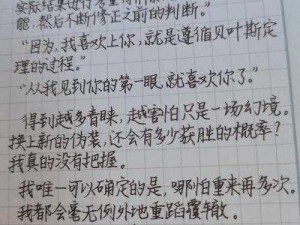 实际结果进行
能，然后不断修正之前的判断。”
“因为，我喜欢上你，就是遵循贝叶斯定
理的过程。”
“从我见到你的第一眼，就喜欢你了。”
得到越多青睐，越害怕只是一场幻境。
换上新的伪装，还会有多少获胜的概率？
我真的没有把握。
我唯一可以确定的是，哪怕重来再多次，
我都会毫无例外地重蹈覆辙。